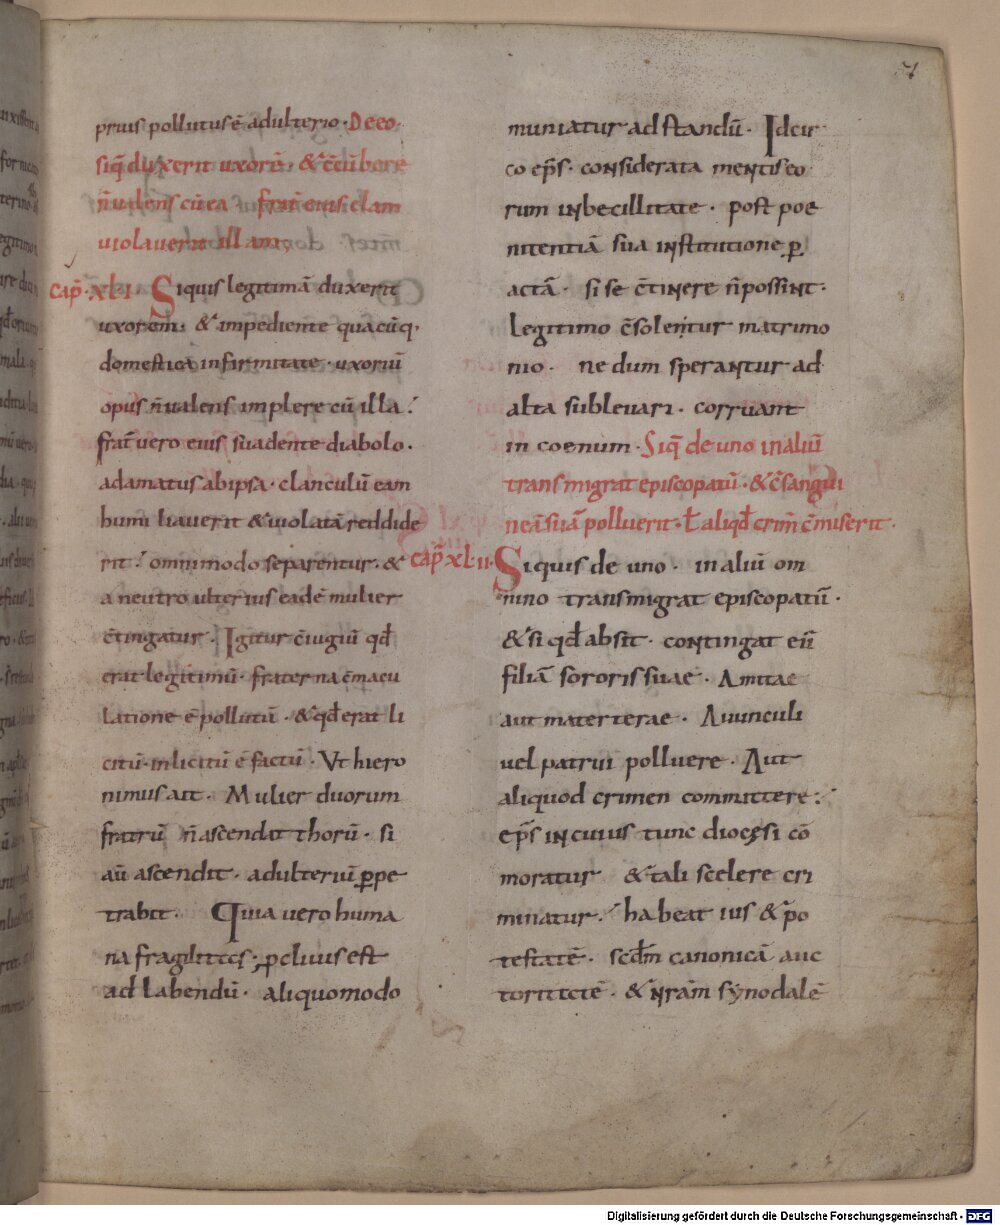 51
prius pollutus ē adulterio · De eo ·
siq̄ duxerit uxorē · & c̄cūbere
n̄ ualens cū ea · frat̄ eius clam
uiolauerit illam,
cap̄ · xli Siquis legitimā duxerit
uxorem · & impediente quacūq;
domestica infirmitate · uxoriū
opus n̄ ualens implere cū illa ·
frat̄ uero eius suadente diabolo ·
adamatus ab ipsa · clanculū eam
humiliauerit & uiolatā reddide
rit · omnimodo separentur · &
a neutro ulterius eadē mulier
c̄tingatur · Igitur c̄iugiū qđ
erat legitimū · fraterna c̄macu
latione ē pollutū · & qđ erat li
citū · inlicitū ē factū · Vt hiero
nimus ait · Mulier duorum
fratrū n̄ ascendat thorū · si
aū ascendit · adulteriū ꝑpe
trabit · Quia uero huma
na fragilitas · ꝓcliuus est
ad labendū · aliquomodo
muniatur ad standū · Idcir
co ep̄s · considerata mentis eo
rum inbecillitate · post poe
nitentiā sua institutione ꝑ
actā · si se c̄tinere n̄ possint ·
legitimo c̄solentur matrimo
nio · ne dum sperantur ad
alta subleuari · corruant
in coenum · Siq̄ de uno in aliū
transmigrat episcopatū · & c̄sangui
neā suā polluerit · ł aliqđ crim̄ c̄miserit ·
cap̄ xl·ii · Siquis de uno · in aliū om
nino transmigrat episcopatū ·
& si qđ absit · contingat eū
filiā sororis suae · Amitae
aut materterae · Auunculi
uel patrui polluere · Aut
aliquod crimen committere ·
ep̄s in cuius tunc diocesi cō
moratur & tali scelere cri
minatur · habeat ius & po
testatē · scđm canonicā auc
toritatē · & n̄rām synodalē
Digitalisierung gefördert durch die Deutsche Forschungsgemeinschaft - DFG